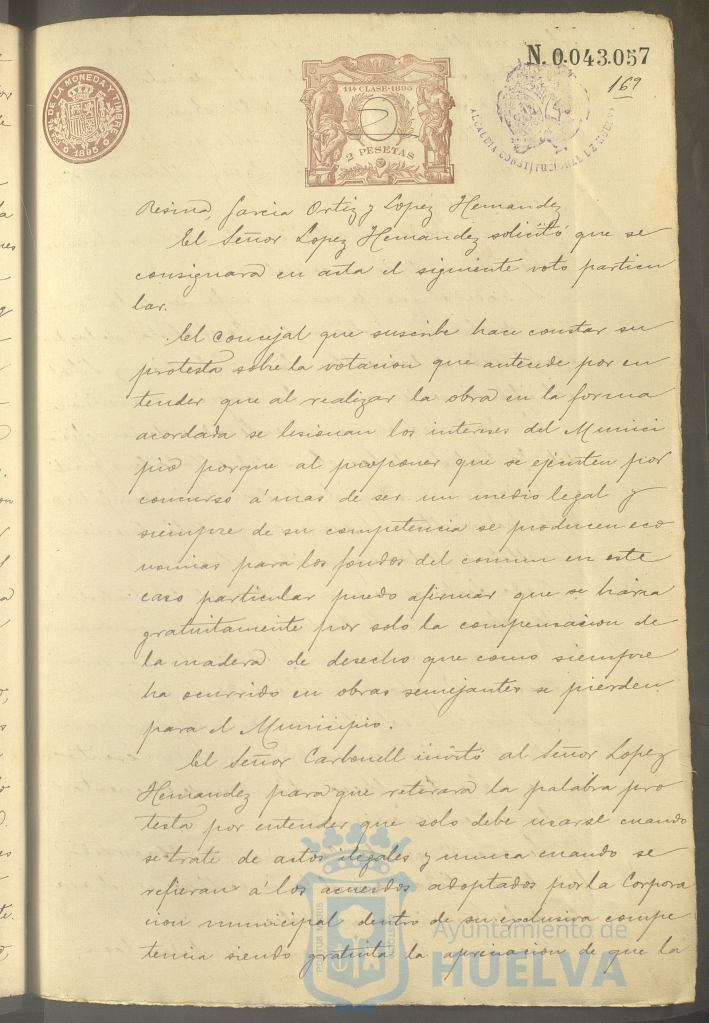 N. 0.043.057
169
FAB. DE LA MONEDA Y TIMBRE
1895
11ª CLASE-1895
2 PESETAS
ALCALDIA CONSTITUCIONAL DE HUELVA
Resina, Garcia Ortiz y Lopez Hernandez
El Señor Lopez Hernandez solicitó que se
consignara en acta el siguiente voto particu
lar.
El Concejal que suscribe hace constar su
protesta sobre la votacion que antecede por en
tender que al realizar la obra en la forma
acordada se lesionan los intereses del Munici
pio porque al proponer que se ejecuten por
concurso á mas de ser un medio legal y
siempre de su competencia se producen eco
nomias para los fondos del comun en este
caso particular puedo afirmar que se haria
gratuitamente por solo la compensacion de
la madera de desecho que como siempre
ha ocurrido en obras semejantes se pierden
para el Municipio.
El Señor Carbonell invitó al Señor Lopez
Hernandez para que retirara la palabra pro
testa por entender que solo debe usarse cuando
se trate de actos ilegales y nunca cuando se
refieran á los acuerdos adoptados por la Corpora
cion municipal dentro de su exclusiva compe
tencia siendo gratuita la apreciacion de que la
Ayuntamiento de
HUELVA